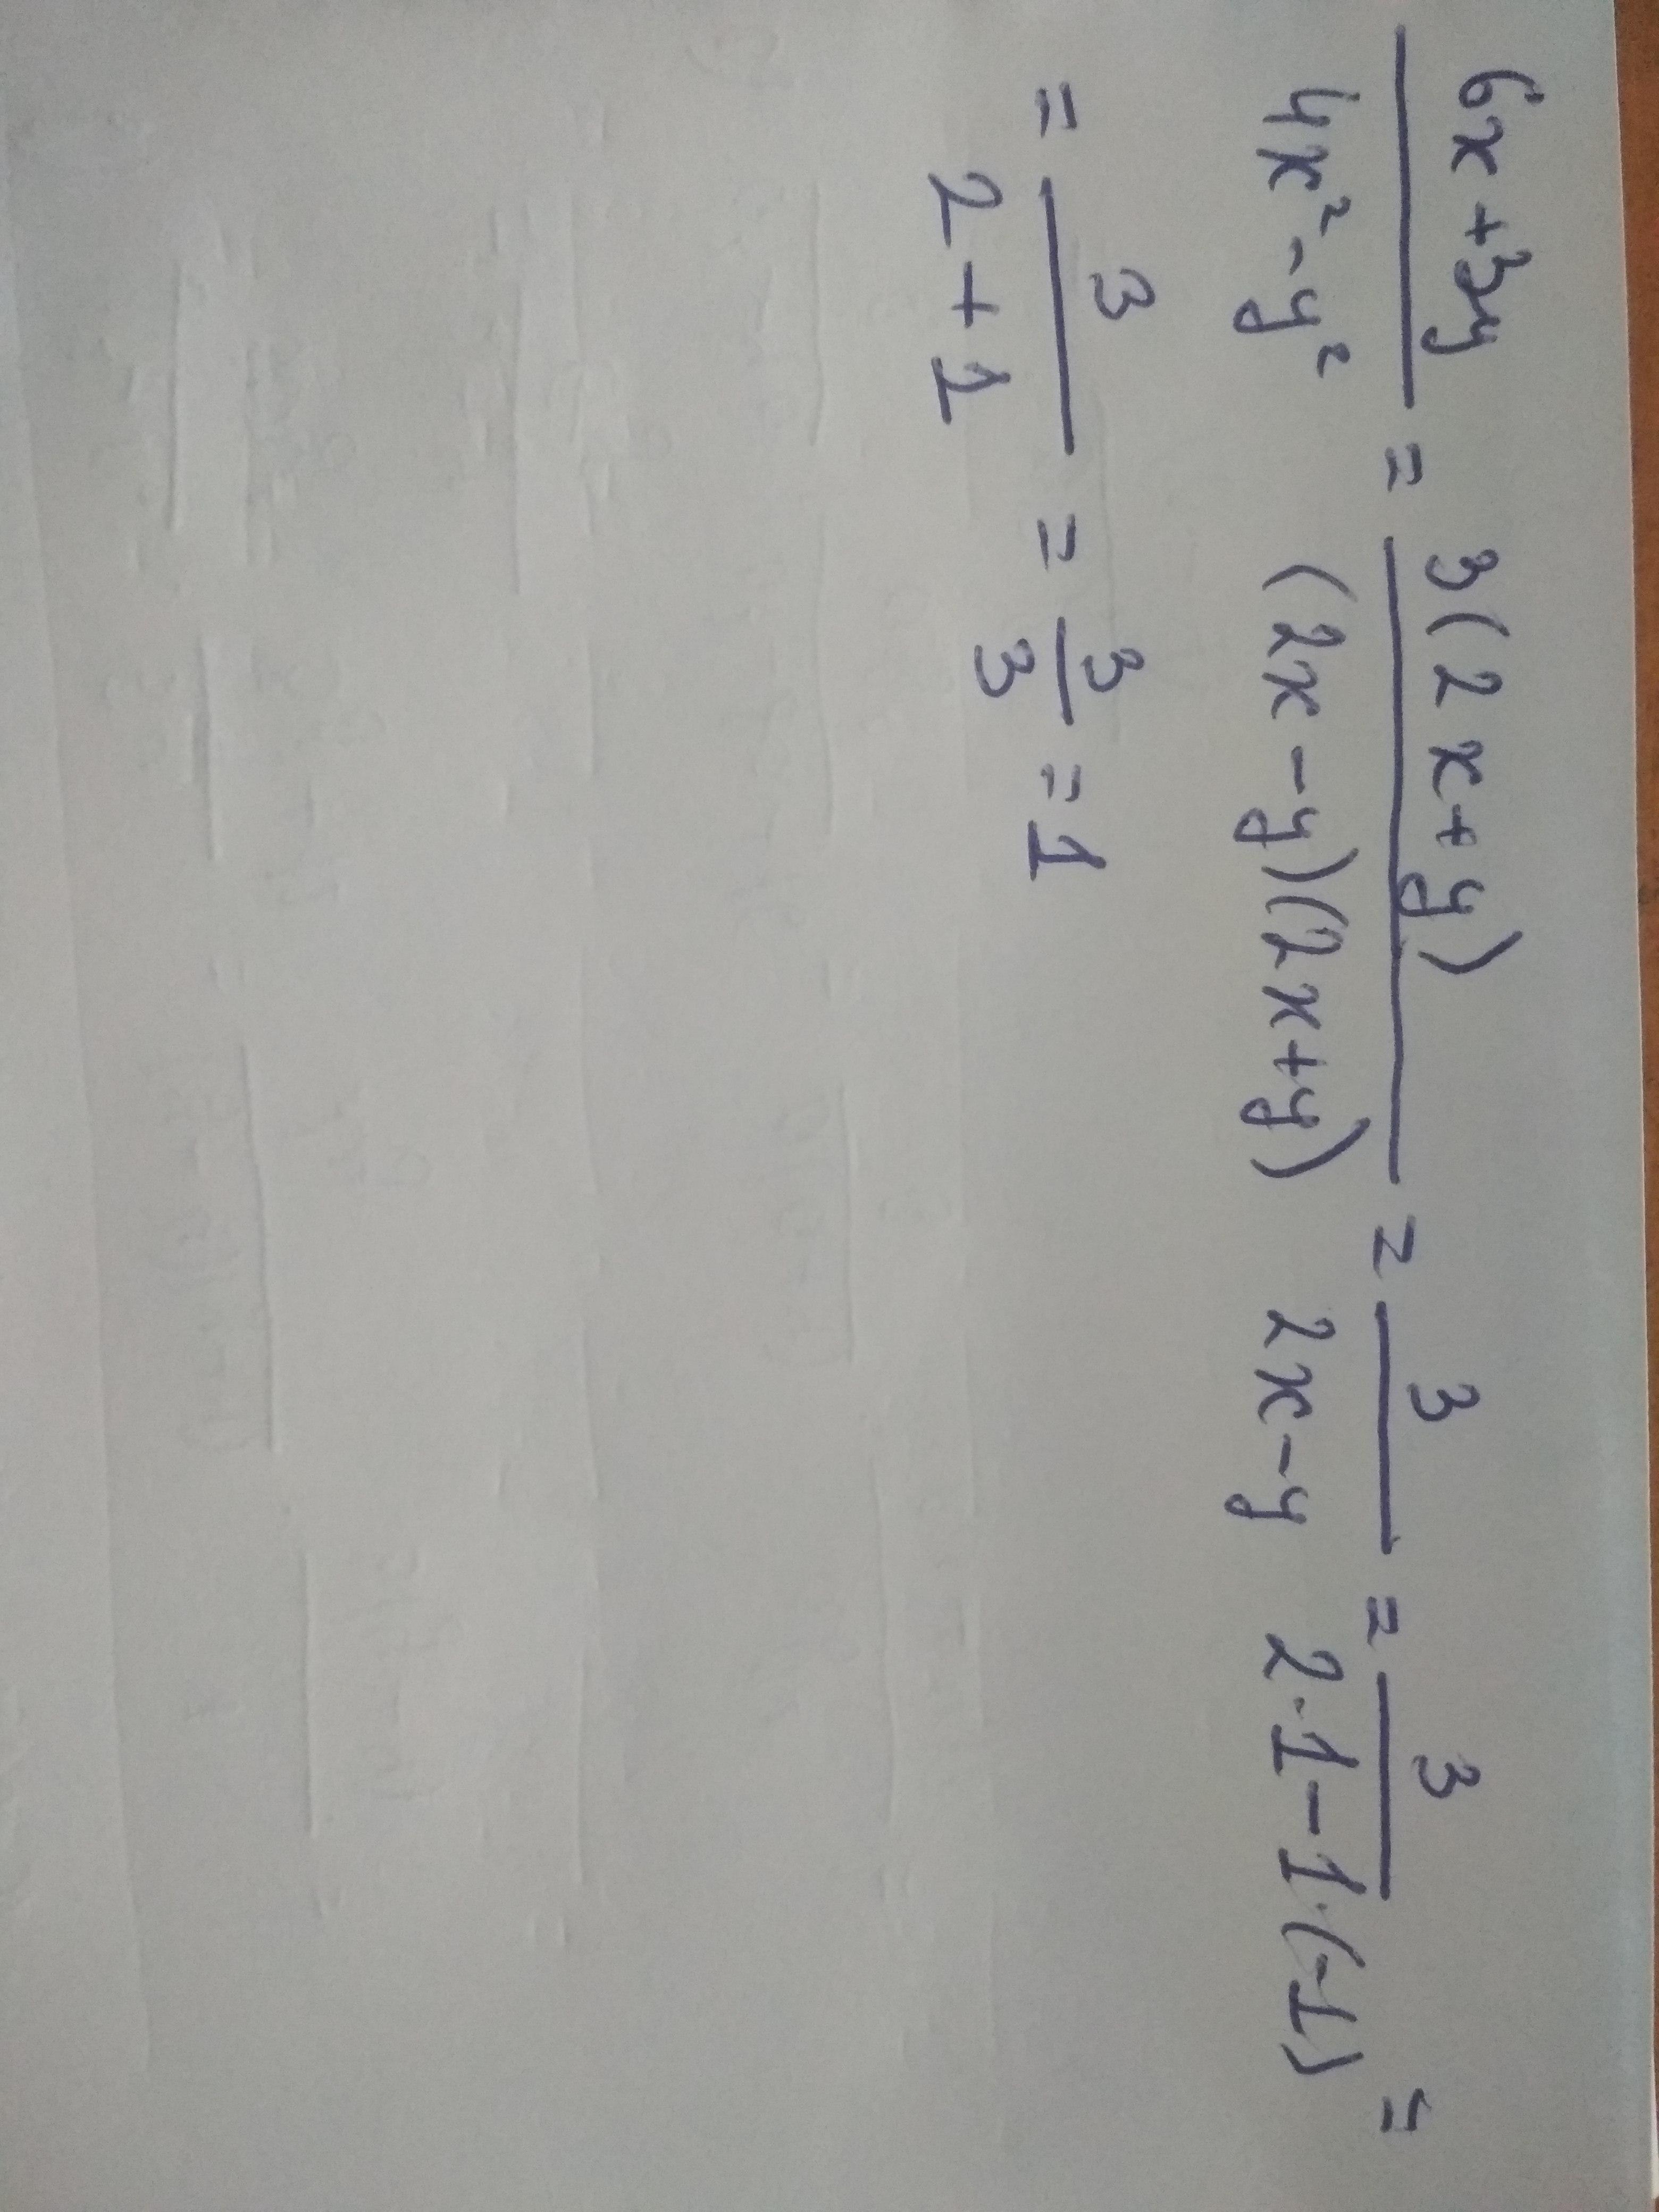 \frac{6x+3y}{4x^2-y^2} = \frac{3(2x+y)}{(2x-y)(2x+y)} = \frac{3}{2x-y} = \frac{3}{2\cdot1-1\cdot(-1)} =
= \frac{3}{2+1} = \frac{3}{3} = 1